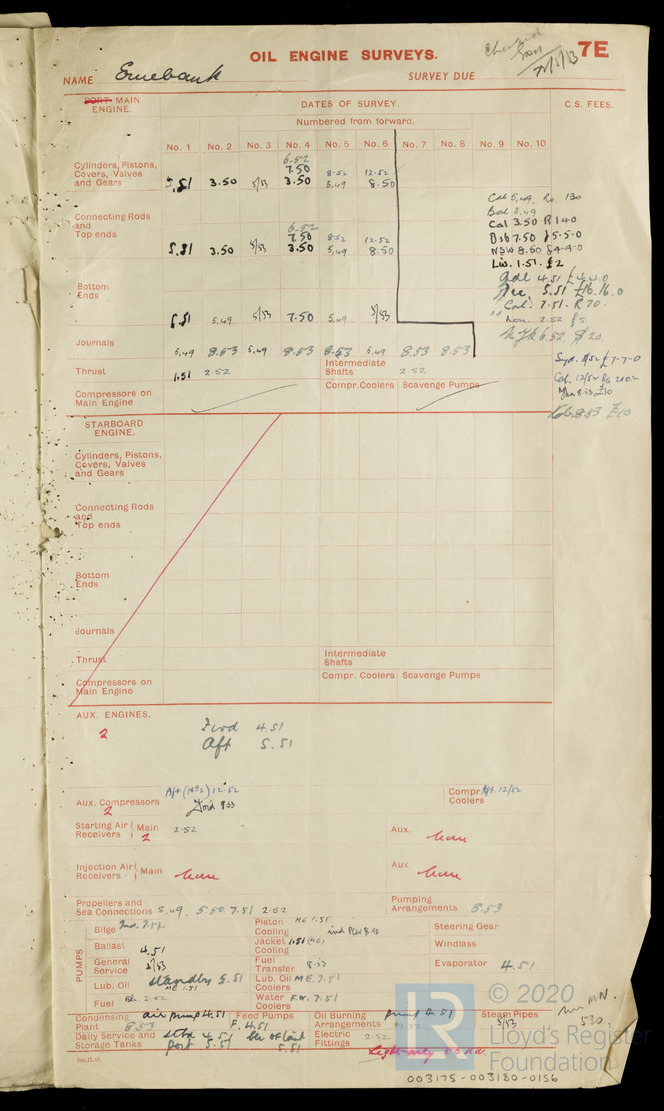 OIL ENGINE SURVEYS.
7E
NAME
SURVEY DUE
PORT MAIN ENGINE.
DATES OF SURVEY.
C.S. FEES.
Numbered from forward.
No. 1 No. 2 No. 3 No. 4 No. 5 No. 6 No. 7 No. 8 No. 9 No. 10
6.52
Cylinders, Pistons, 7.50 8.52 12.52
Covers, Valves
and Gears 5.51 3.50 5/53 3.50 5.49 8.50
Cal 5.49. Rs. 130
8.49
Connecting Rods
and
Top ends
6.52
7.50 8.52 12.52
5.51 3.50 5/53 3.50 5.49 8.50
Cal 3.50 R140
Bsb 7.50 £5-5-0
NSW 8.50 £4-4-0
Liv. 1.51. £2
4.51 £4.4.0
5.51 £16.16.0
Bottom
Ends
5.51 5.49 5/53 7.50 5.49 5/53
Cal. 7.51. R 70-
" Lon. 2.52 £5
N.Yk 6.52. $20
Journals
5.49 8.53 5.49 8.53 8.53 5.49 8.53 8.53
Syd. 8/52 £7-7-0
Thrust 1.51 2.52 Intermediate Shafts 2.52
Cal. 12/52 Rs
8.53 £10
Compressors on
Main Engine
Compr. Coolers Scavenge Pumps
8.53 £10
STARBOARD
ENGINE.
Cylinders, Pistons,
Covers, Valves
and Gears
Connecting Rods
and
Top ends
Bottom
Ends
Journals
Thrust Intermediate Shafts
Compressors on
Main Engine
Compr. Coolers Scavenge Pumps
AUX. ENGINES.
2
Fwd 4.51
Aft 5.51
Aux. Compressors
2
Aft (No2) 12.52
Ford 8.53
Compr. Coolers Aft. 12/52
Starting Air Receivers Main 2 2.52
Aux. None
Injection Air Receivers Main None
Aux. None
Propellers and
Sea Connections 8.49. 5.50 7.51 2.52
Pumping
Arrangements 8.53
PUMPS
Bilge 7.51
Piston Cooling ME 1.51 8.53
Steering Gear
Ballast 4.51
Jacket Cooling 1.51 (ME)
Windlass
General Service 5/53
Fuel Transfer 8.53
Evaporator 4.51
Lub. Oil standby 5.51
ME 1.51
Lub. Oil Coolers M.E. 7.51
Fuel 2.52
Water Coolers F.W. 7.51
Condensing Plant air pump 4.51
8.53
Feed Pumps F. 4.51
Oil Burning Arrangements pump 4.51
Steam Pipes 5/53
Daily Service and
Storage Tanks stbd 4.51
port 5.51
5.51
Electric Fittings 2.52
530
© 2020
Lloyd's Register
Foundation
LR
003175-003180-0156